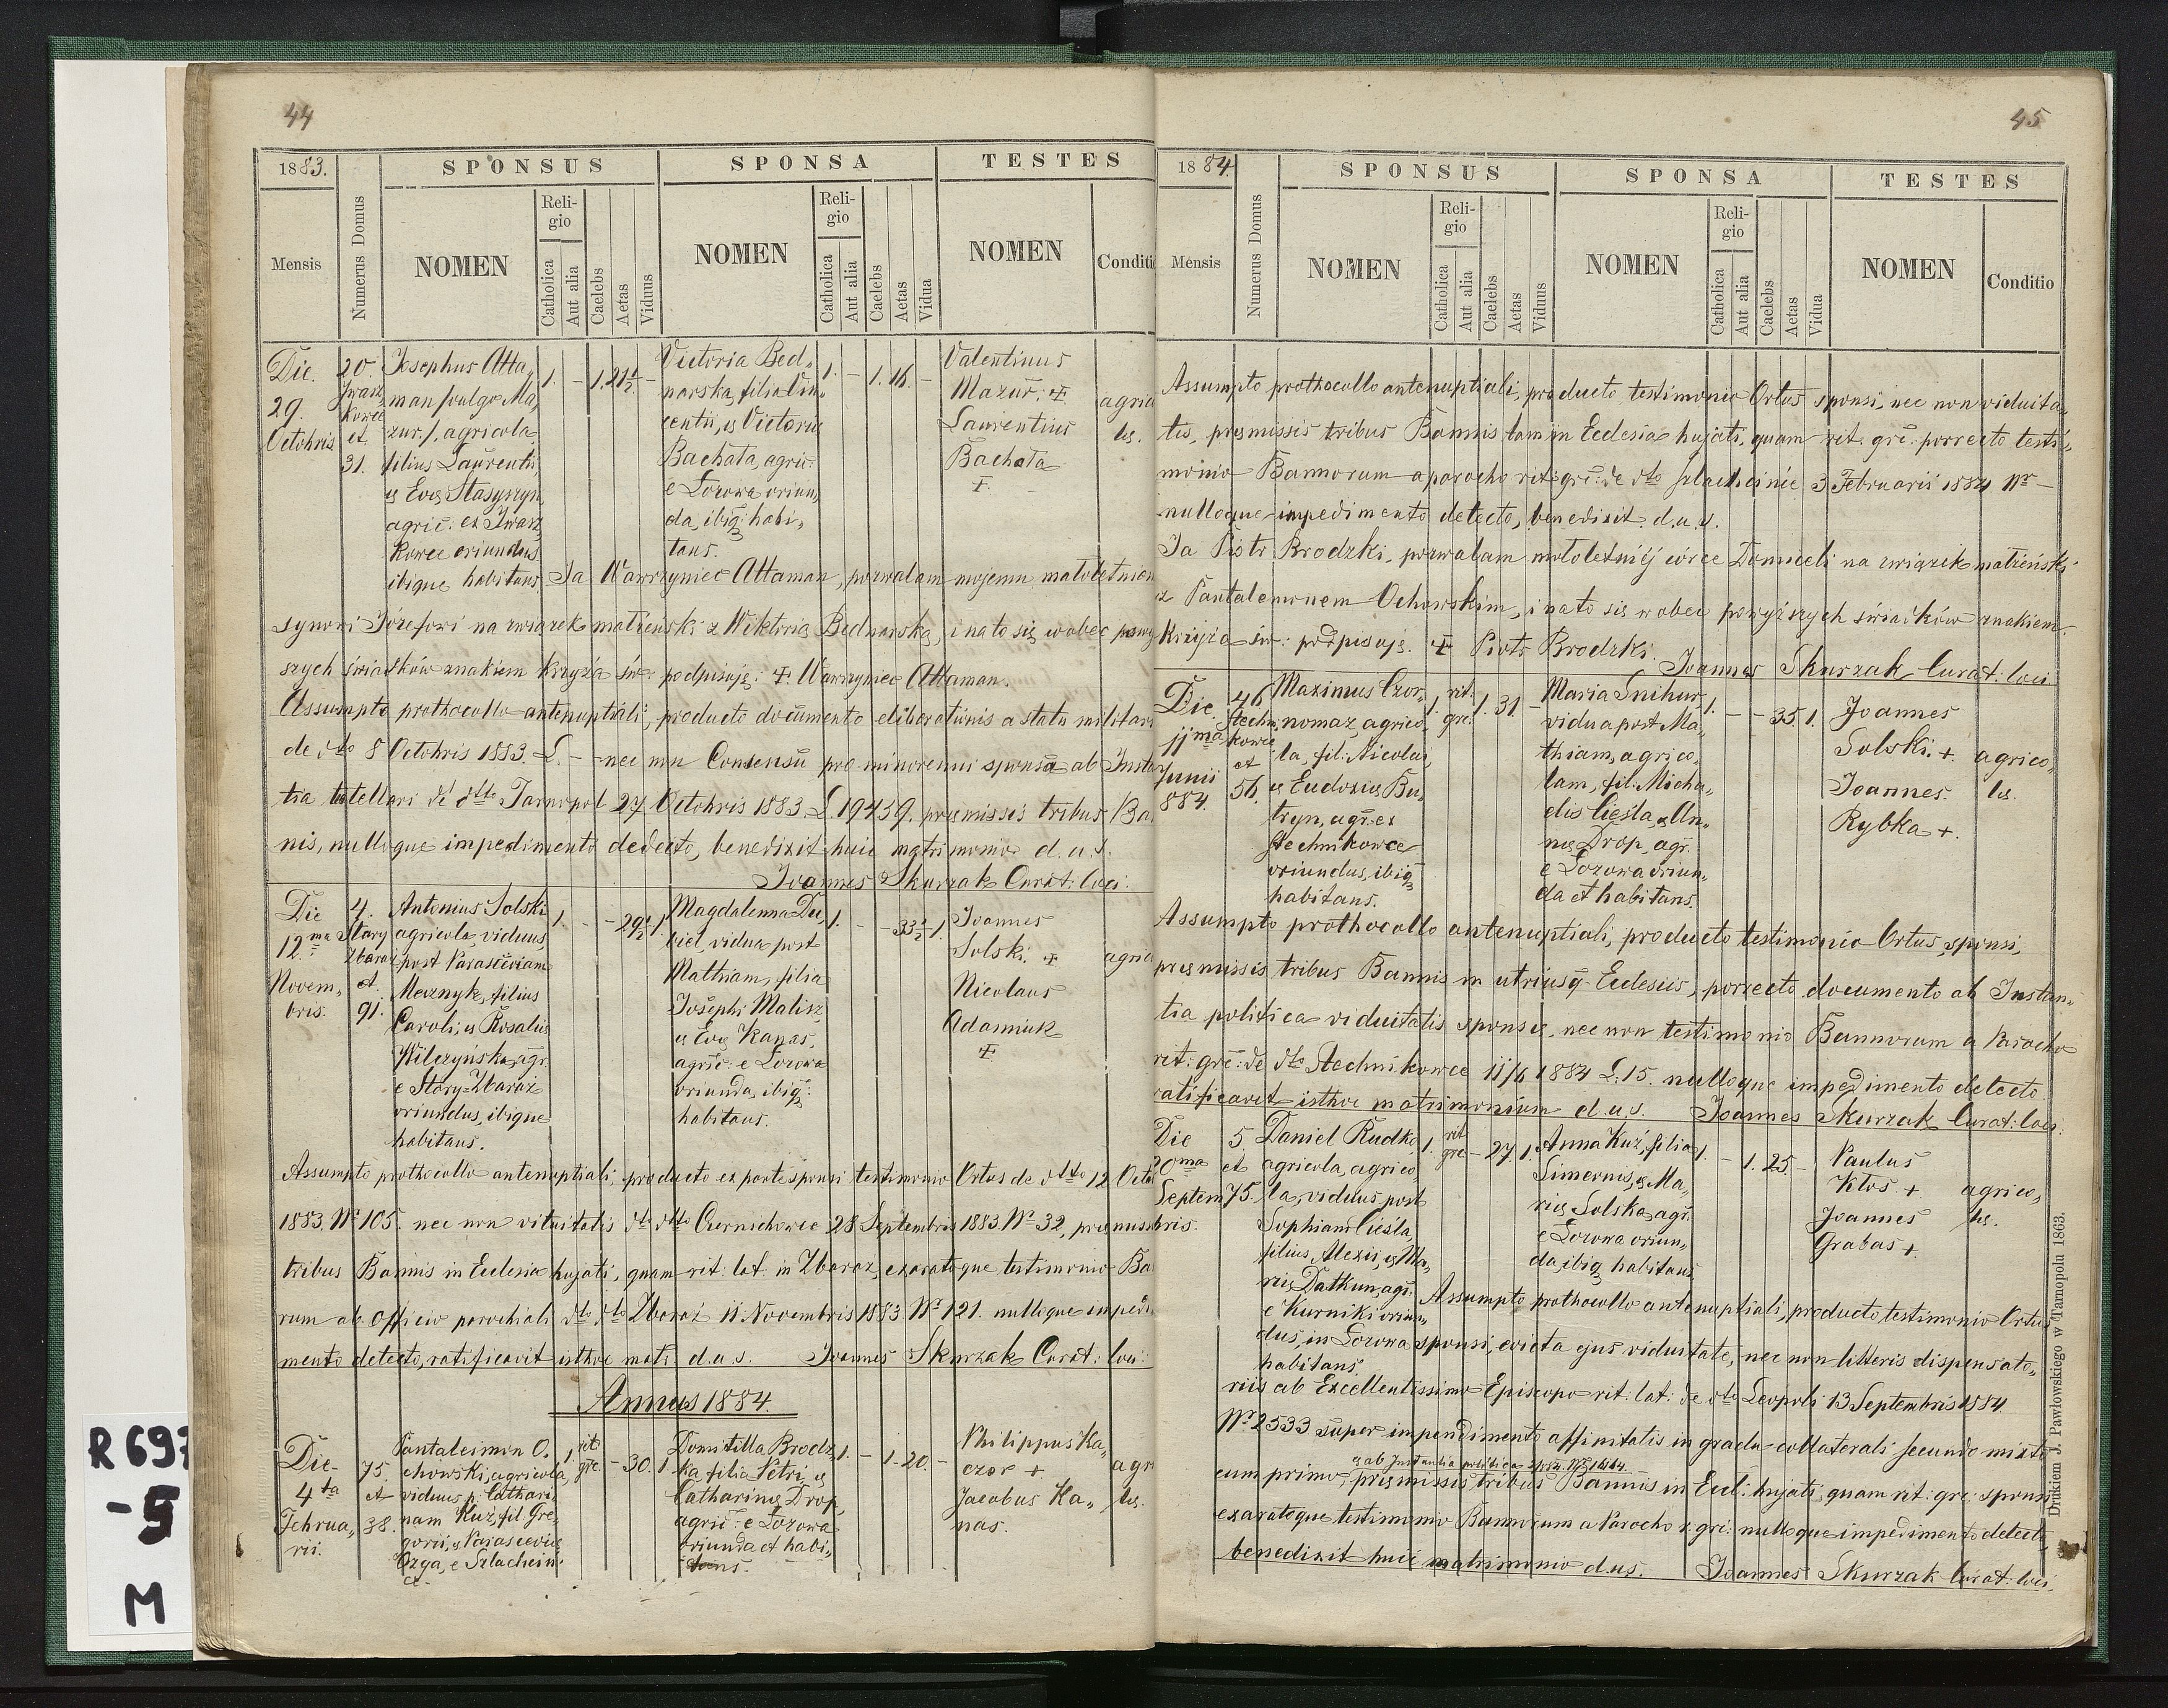 44
1883.
SPONSUS
SPONSA
TESTES
Mensis
Numerus Domus
NOMEN
Reli-
gio
Catholica
Aut alia
Caelebs
Aetas
Viduus
NOMEN
Reli-
gio
Catholica
Aut alia
Caelebs
Aetas
Vidua
NOMEN
Conditi
Die
29.
Octobris
20.
Iwasz
kowce
et
31.
Josephus Atta„
man /vulgo Ma„
zur/, agricola,
filius Laurentii,
et Evae Stasyszyn,
agric: ex Iwasz
kowce oriundus
ibique habitans.
1. - 1. 21½ -
Victoria Bed„
narska, filia Vin„
centii, et Victoriae
Bachata, agric:
e Łozowa oriun„
da, ibiq: habi„
tans.
1. - 1. 16. -
Valentinus
Mazur. +
Laurentius
Bachata
+.
agrico
lae.
Ja Wawrzyniec Attaman, pozwalam mojemu małoletniem
synowi Józefowi na związek małżeński z Wiktorią Bednarską, i na to się wobec powy
szych świadków znakiem krzyża św: podpisuję: + Wawrzyniec Attaman.
Assumpto prothocollo antenuptiali, producto documento eliberationis a statu militari
de dto 8 Octobris 1883. L. - nec non Consensu pro minorenni sponsa ab Instan
tia tutellari de dtto Tarnopol 27 Octobris 1883. L. 19439. praemissis tribus Ba
nis, nulloque impedimento dedecto, benedixit huic matrimonio d.u.s.
Joannes Skurzak Curat: loci.
Die
12ma
Novem„
bris.
4.
Stary
Zbaraż
et
91.
Antonius Solski
agricola, viduus
post Parasceviam
Mecznyk, filius
Caroli, et Rosaliae
Wilczyńska, agr.
e Stary=Zbaraż
oriundus, ibique
habitans.
1. - - 29½ 1.
Magdalenna Du„
biel, vidua post
Mathiam, filia
Josephi Malisz,
et Evae Kanas,
agric: e Łozowa
oriunda, ibiq:
habitans.
1. - - 33½ 1.
Joannes
Solski +
Nicolaus
Adamiuk
+
agrico
Assumpto prothocollo antenuptiali, producto ex parte sponsi testimonio Ortus de dtto 12 Octo
1883. Nr 105. nec non vituitatis de dtto Czernichowce 28 Septembris 1883. Nr 32, praemiss
tribus Bannis in Ecclesia hujati, quam rit: lat: in Zbaraż, exaratoque testimonio Ba
rum ab officio parochiali de dto Zbaraż 11 Novembris 1883 Nr 121. nulloque impedi
mento detecto, ratificavit isthoc mati. d.u.s. Joannes Skurzak Curat: loci:
Annus 1884.
Die
4ta
Februa„
rii.
75.
et
38.
Pantaleimon O„
chowski, agricola,
viduus p: Cathari„
nam Kuź, fil. Gre„
gorii, et Parasceviae
Ozga, e Szlachcin„
ce.
1. rit: gre. - 30. 1.
Domitilla Brodz„
ka filia Petri, et
Catharinae Drop,
agric: e Łozowa
oriunda et habi„
tans.
1. - 1. 20. -
Philippus Ka„
czor +
Jacobus Ka„
nas.
agri
lae.
45
1884
SPONSUS
SPONSA
TESTES
Mensis
Numerus Domus
NOMEN
Reli-
gio
Catholica
Aut alia
Caelebs
Aetas
Viduus
NOMEN
Reli-
gio
Catholica
Aut alia
Caelebs
Aetas
Vidua
NOMEN
Conditio
Assumpto prothocollo antenuptiali, producto testimonio Ortus sponsi, nec non viduita„
tis, praemissis tribus Bannis tam in Ecclesia hujati, quam rit: gre: porrecto testi„
monio Bannorum a parocho rit: gre: de dto Szlachcińce 3 Februarii 1884 Nr -
nulloque impedimento detecto, benedixit. d.u.s.
Ja Piotr Brodzki, pozwalam małoletniéj córce Domiceli na związek małżeński
z Pantalemonem Ochowskim, i na to się wobec powyższych świadków znakiem
Krzyża św: podpisuję. + Piotr Brodzki. Joannes Skurzak Curat: loci
Die
11ma
Junii
884.
46
Stechni
kowce
et
56.
Maximus Czor„
nomaz, agrico„
la, fil: Nicolai,
et Eudoxiae Bu„
tryn, agr: ex
Stechnikowce
oriundus, ibiq
habitans.
1. rit: gre. 1. 31. -
Maria Snihur,
vidua post Ma„
thiam, agrico„
lam, fil: Micha„
elis Cieśla, et An„
nae Drop, agr:
e Łozowa oriun„
da et habitans.
1. - - 35. 1.
Joannes
Solski. +
Joannes
Rybka +.
agrico„
lae.
Assumpto prothocollo antenuptiali, producto testimonio Ortus sponsi,
praemissis tribus Bannis in utriusq Ecclesiis, porrecto documento ab Instan„
tia politica viduitatis sponsae, nec non testimonio Bannorum a Parocho
rit: gre: de dto Stechnikowce 11/6 1884 L: 15. nulloque impedimento detecto
ratificavit isthoc matrimonium d.u.s. Joannes Skurzak Curat: loci.
Die
20ma
Septem
bris.
5
et
75.
Daniel Rudko,
agricola, agrico„
la, viduus post
Sophiam Cieśla,
filius Alexii, et Ma„
riae Datkun, agr:
e Kurniki oriun„
dus, in Łozowa
habitans.
1. rit gre - 27. 1.
Anna Kuź, filia
Simeonis, et Ma„
riae Solska, agr:
e Łozowa oriun„
da, ibiq habitans.
1. - 1. 25. -
Paulus
Kłos +
Joannes
Grabas +.
agrico„
lae.
Assumpto prothocollo antenuptiali, producto testimonio Ortus
sponsi, evicta ejus viduitate, nec non litteris dispensato„
riis ab Excellentissimo Episcopo rit: lat: de dto Leopoli 13 Septembris 1884
Nr 2533 super impendimento affinitatis in gradu collaterali secundo mixto
et ab Instantia politica
cum primo, praemissis tribus Bannis in Eccl: hujati, quam rit: gre: sponsi
exaratoque testimonio Bannorum a Parocho r: gre: nulloque impedimento detecto,
benedixit huic matrimonio d.u.s. Joannes Skurzak Curat: loci.
Drukiem J. Pawłowskiego w Tarnopolu 1863.
R 697
-5
M